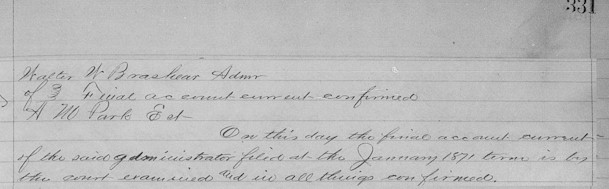 331
Walter W Brashear Admr
of } Final account current confirmed
A M Park Est
On this day the final account current
of the said administrator filed at the January 1871 term is by
the court examined and in all things confirmed.